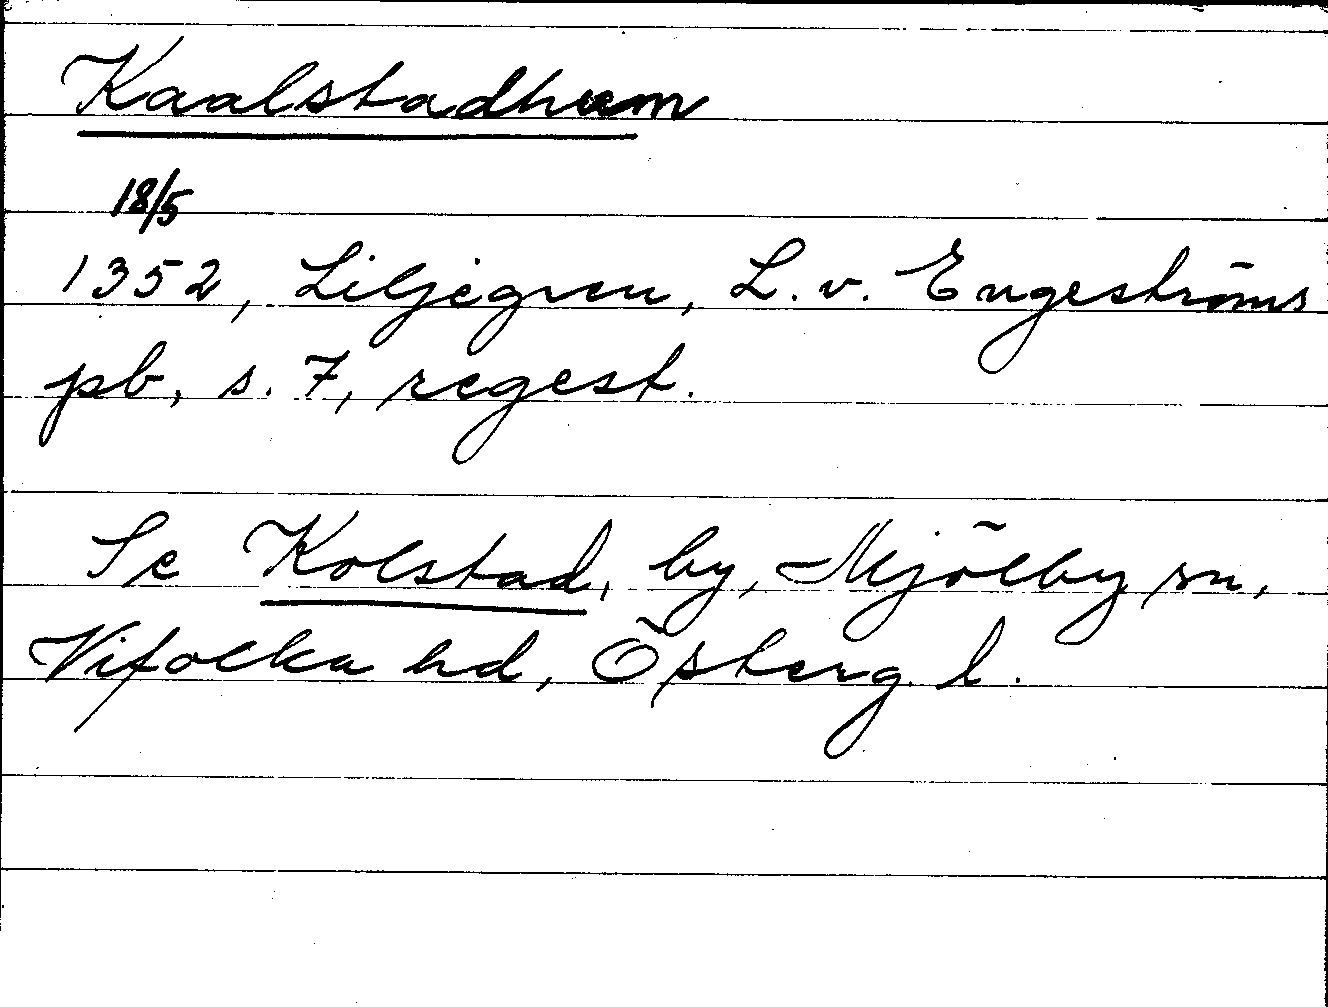 Kaalstadhum
18/5
1352, Liljegren, L. v. Engeströms
pb, s. 7, regest.
Se Kolstad, by, Mjölby sn,
Vifolka hd, Österg. l.